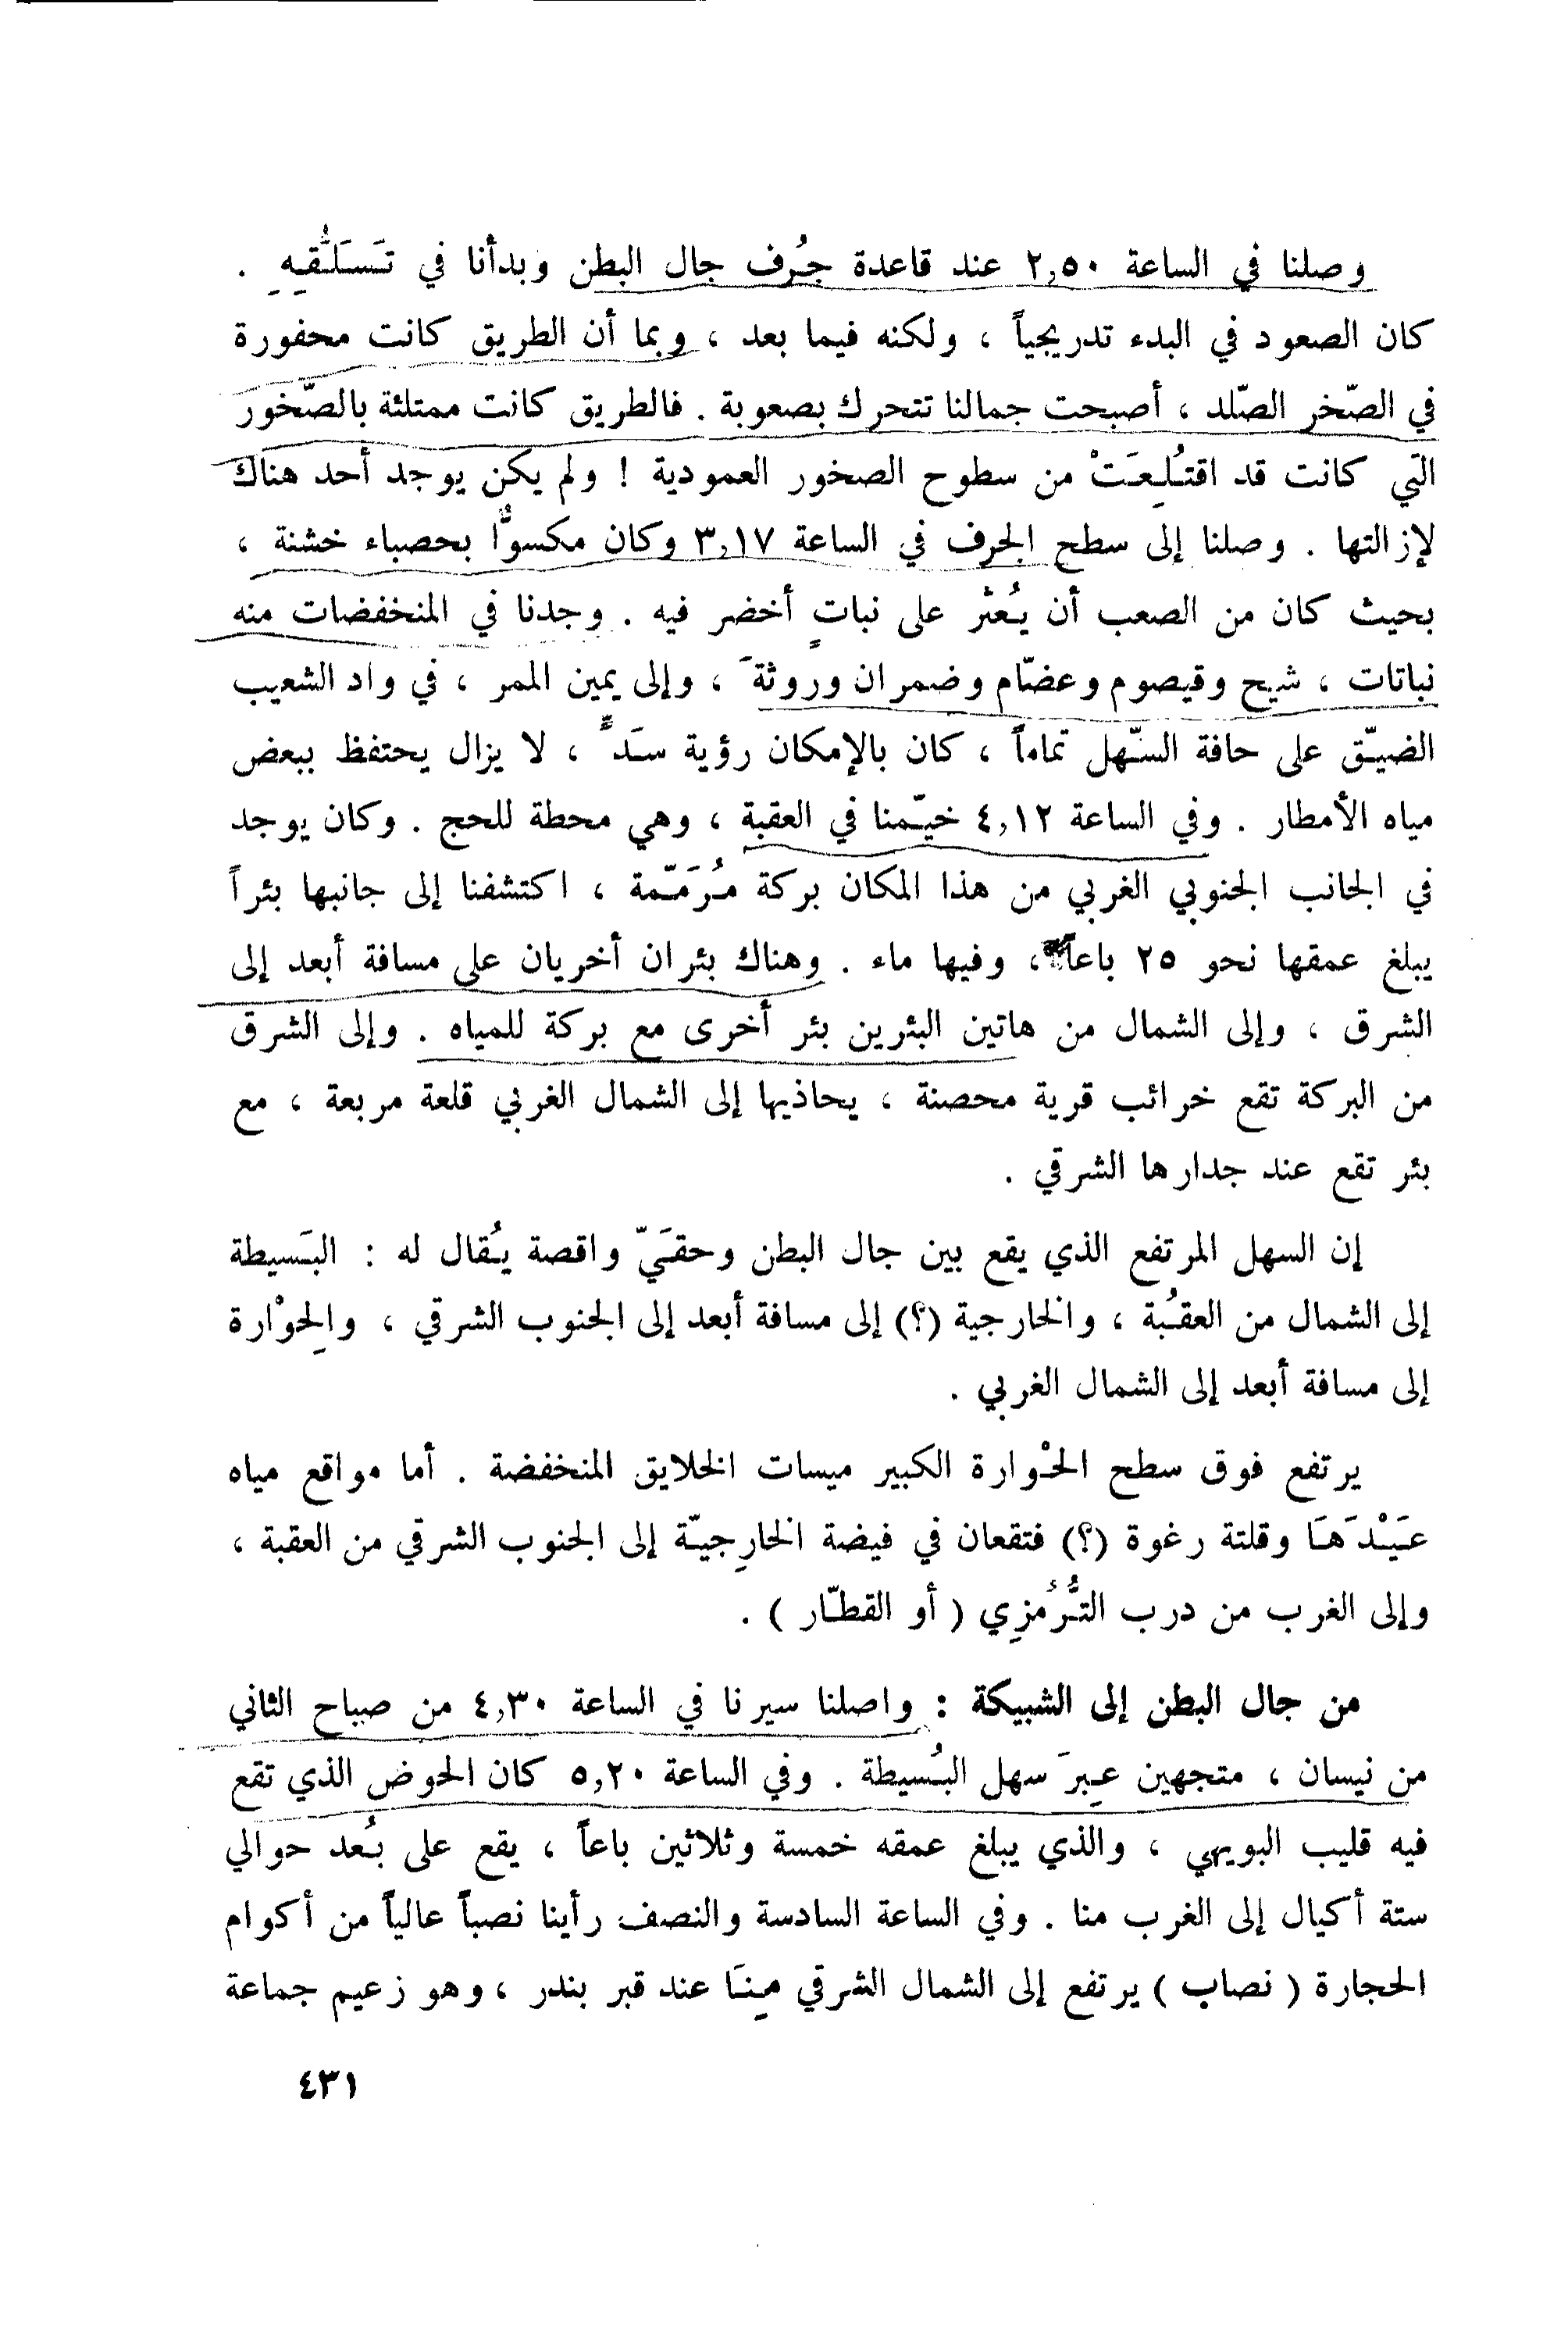 وصلنا في الساعة ٢,٥٠ عند قاعدة جُرف جال البطن وبدأنا في تَسَلُّقِهِ .
كان الصعود في البدء تدريجياً ، ولكنه فيما بعد ، وبما أن الطريق كانت محفورة
في الصّخر الصّلد ، أصبحت جمالنا تتحرك بصعوبة . فالطريق كانت ممتلئة بالصّخور
التي كانت قد اقتُلِعَتْ من سطوح الصخور العمودية ! ولم يكن يوجد أحد هناك
لإزالتها . وصلنا إلى سطح الجرف في الساعة ٣,١٧ وكان مكسوًّا بحصباء خشنة ،
بحيث كان من الصعب أن يُعثر على نباتٍ أخضر فيه . وجدنا في المنخفضات منه
نباتات ، شيح وقيصوم وعضّام وضمران وروثةَ ، وإلى يمين الممر ، في واد الشعيب
الضيّق على حافة السّهل تماماً ، كان بالإمكان رؤية سَدٍّ ، لا يزال يحتفظ ببعض
مياه الأمطار . وفي الساعة ٤,١٢ خيّمنا في العقبة ، وهي محطة للحج . وكان يوجد
في الجانب الجنوبي الغربي من هذا المكان بركة مُرَمّمة ، اكتشفنا إلى جانبها بئراً
يبلغ عمقها نحو ٢٥ باعاً ، وفيها ماء . وهناك بئران أخريان على مسافة أبعد إلى
الشرق ، وإلى الشمال من هاتين البئرين بئر أخرى مع بركة للمياه . وإلى الشرق
من البركة تقع خرائب قرية محصنة ، يحاذيها إلى الشمال الغربي قلعة مربعة ، مع
بئر تقع عند جدارها الشرقي .
إن السهل المرتفع الذي يقع بين جال البطن وحقَيّ واقصة يُقال له : البَسيطة
إلى الشمال من العقُبة ، والخارجية (؟) إلى مسافة أبعد إلى الجنوب الشرقي ، والِحوْارة
إلى مسافة أبعد إلى الشمال الغربي .
يرتفع فوق سطح الحْوارة الكبير ميسات الخلايق المنخفضة . أما مواقع مياه
عَيْدَهَا وقلتة رغوة (؟) فتقعان في فيضة الخارِجيّة إلى الجنوب الشرقي من العقبة ،
وإلى الغرب من درب التُّرُمزِي ( أو القطّار ) .
من جال البطن إلى الشبيكة : واصلنا سيرنا في الساعة ٤,٣٠ من صباح الثاني
من نيسان ، متجهين عِبرَ سهل البُسيطة . وفي الساعة ٥,٢٠ كان الحوض الذي تقع
فيه قليب البويهي ، والذي يبلغ عمقه خمسة وثلاثين باعاً ، يقع على بُعد حوالي
ستة أكيال إلى الغرب منا . وفي الساعة السادسة والنصف رأينا نصباً عالياً من أكوام
الحجارة ( نصاب ) يرتفع إلى الشمال الشرقي مِنَا عند قبر بندر ، وهو زعيم جماعة
٤٣١